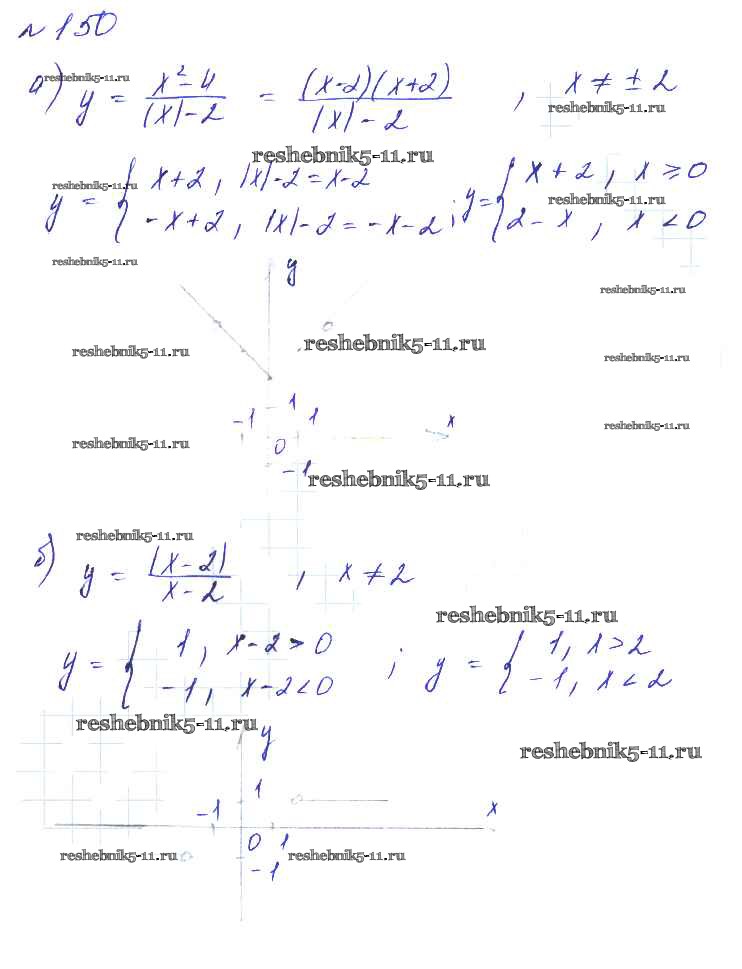 № 150
reshebnik5-11.ru
а) y = x² - 4 / |x| - 2 = (x-2)(x+2) / |x| - 2 , x ≠ ± 2
reshebnik5-11.ru
reshebnik5-11.ru
y = { x+2, |x|-2 = x-2 ; y = { x + 2, x ≥ 0
reshebnik5-11.ru reshebnik5-11.ru
-x+2, |x|-2 = -x-2 2 - x, x < 0
reshebnik5-11.ru
y
reshebnik5-11.ru
reshebnik5-11.ru reshebnik5-11.ru reshebnik5-11.ru
1
-1 1 x
reshebnik5-11.ru 0 reshebnik5-11.ru
-1
reshebnik5-11.ru
reshebnik5-11.ru
б) y = (x - 2) / x - 2 , x ≠ 2
reshebnik5-11.ru
y = { 1, x-2 > 0 ; y = { 1, x > 2
-1, x-2 < 0 -1, x < 2
reshebnik5-11.ru
y
reshebnik5-11.ru
1
-1 x
0 1
reshebnik5-11.ru reshebnik5-11.ru
-1